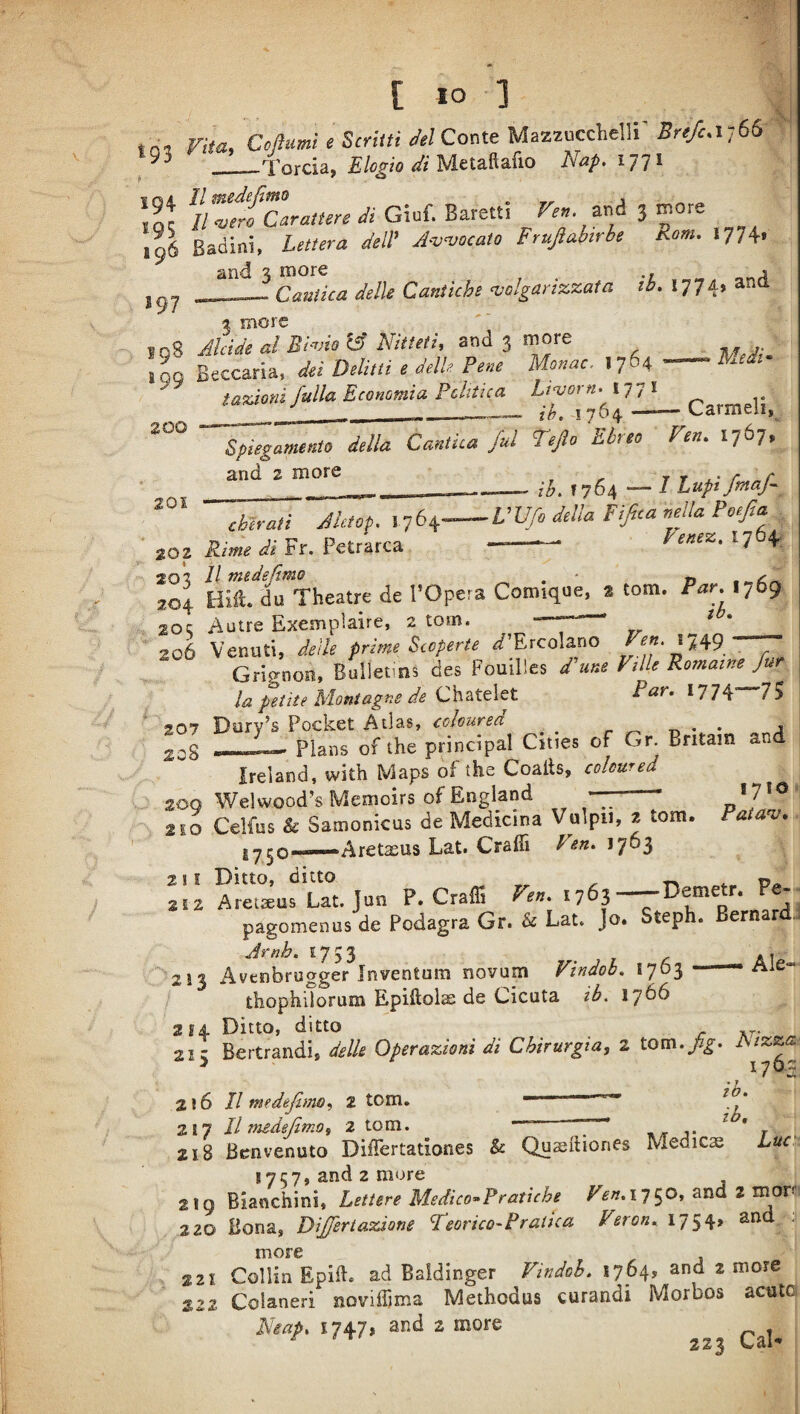 [ 10 ]
193 Vita, Coſtumi e Scritti del Conte Mazzucchelli Breſc. 1766
——Torcia, Elogio di Metaſtaſio Nap. 1771
194 Il medeſimo
195 Il vero Carattere di Giuſ. Baretti Ven. and 3 more
196 Badini, Lettera dell' Avvocato Fruſtabirbe Rom. 1774,
and 3 more
197 ——— Cantica delle Cantiche volgarizzata ib. 1774, and
3 more
198 Alcide al Bivio & Nitteti, and 3 more
199 Beccaria, dei Delitti e delle Pene Monac. 1764 —— Medi-
tazioni ſulla Economia Politica Livorn. 1771
200 ——————— ib. 1764 —— Carmeli,
Spiegamento della Cantica ſul Teſto Ebreo Ven. 1767,
and 2 more
201 ——————— ib. 1764 — I Lupi ſmaſ-
chirati Aletop. 1764——L'Uſo della Fiſica nella Poeſia
202 Rime di Fr. Petrarca ——— Venez. 1764
203 Il medeſimo
204 Hiſt. du Theatre de l'Opera Comique, 2 tom. Par. 1769
205 Autre Exemplaire, 2 tom. ——— ib.
206 Venuti, delle prime Scoperte d'Ercolano Ven. 1749 ——
Grignon, Bulletins des Fouilles d'une Ville Romaine ſur
la petite Montagne de Chatelet Par. 1774—75
207 Dury's Pocket Atlas, coloured
208 ——— Plans of the principal Cities of Gr. Britain and
Ireland, with Maps of the Coaſts, coloured
209 Welwood's Memoirs of England ——— 1710
210 Celſus & Samonicus de Medicina Vulpii, 2 tom. Patav.
1750——Aretæus Lat. Craſſi Ven. 1763
211 Ditto, ditto
212 Aretæus Lat. Jun P. Craſſi Ven. 1763——Demetr. Pe-
pagomenus de Podagra Gr. & Lat. Jo. Steph. Bernard
Arnh. 1753
213 Avenbrugger Inventum novum Vindob. 1763 —— Ale-
thophilorum Epiſtolæ de Cicuta ib. 1766
214 Ditto, ditto
215 Bertrandi, delle Operazioni di Chirurgia, 2 tom. fig. Nizza
1763
216 Il medeſimo, 2 tom. ——— ib.
217 Il medeſimo, 2 tom. ——— ib.
218 Benvenuto Diſſertationes & Quæſtiones Medicæ Luc
1757, and 2 more
219 Bianchini, Lettere Medico-Pratiche Ven. 1750, and 2 more
220 Bona, Diſſertazione Teorico-Pratica Veron. 1754, and
more
221 Collin Epiſt. ad Baldinger Vindob. 1764, and 2 more
222 Colaneri noviſſima Methodus curandi Morbos acuto
Neap. 1747, and 2 more
223 Cal-